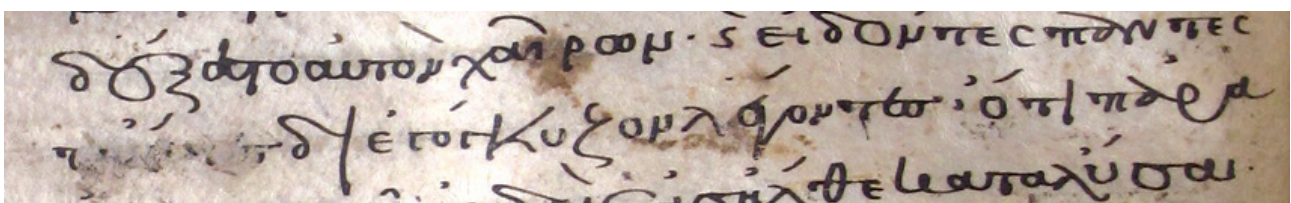 δέξατο αὐτὸν χαίρων· ϗ εἰδόντες πάντες
διεγόγγυζον λέγοντες· ὅτι παρὰ
εἰσῆλθε καταλύσαι·